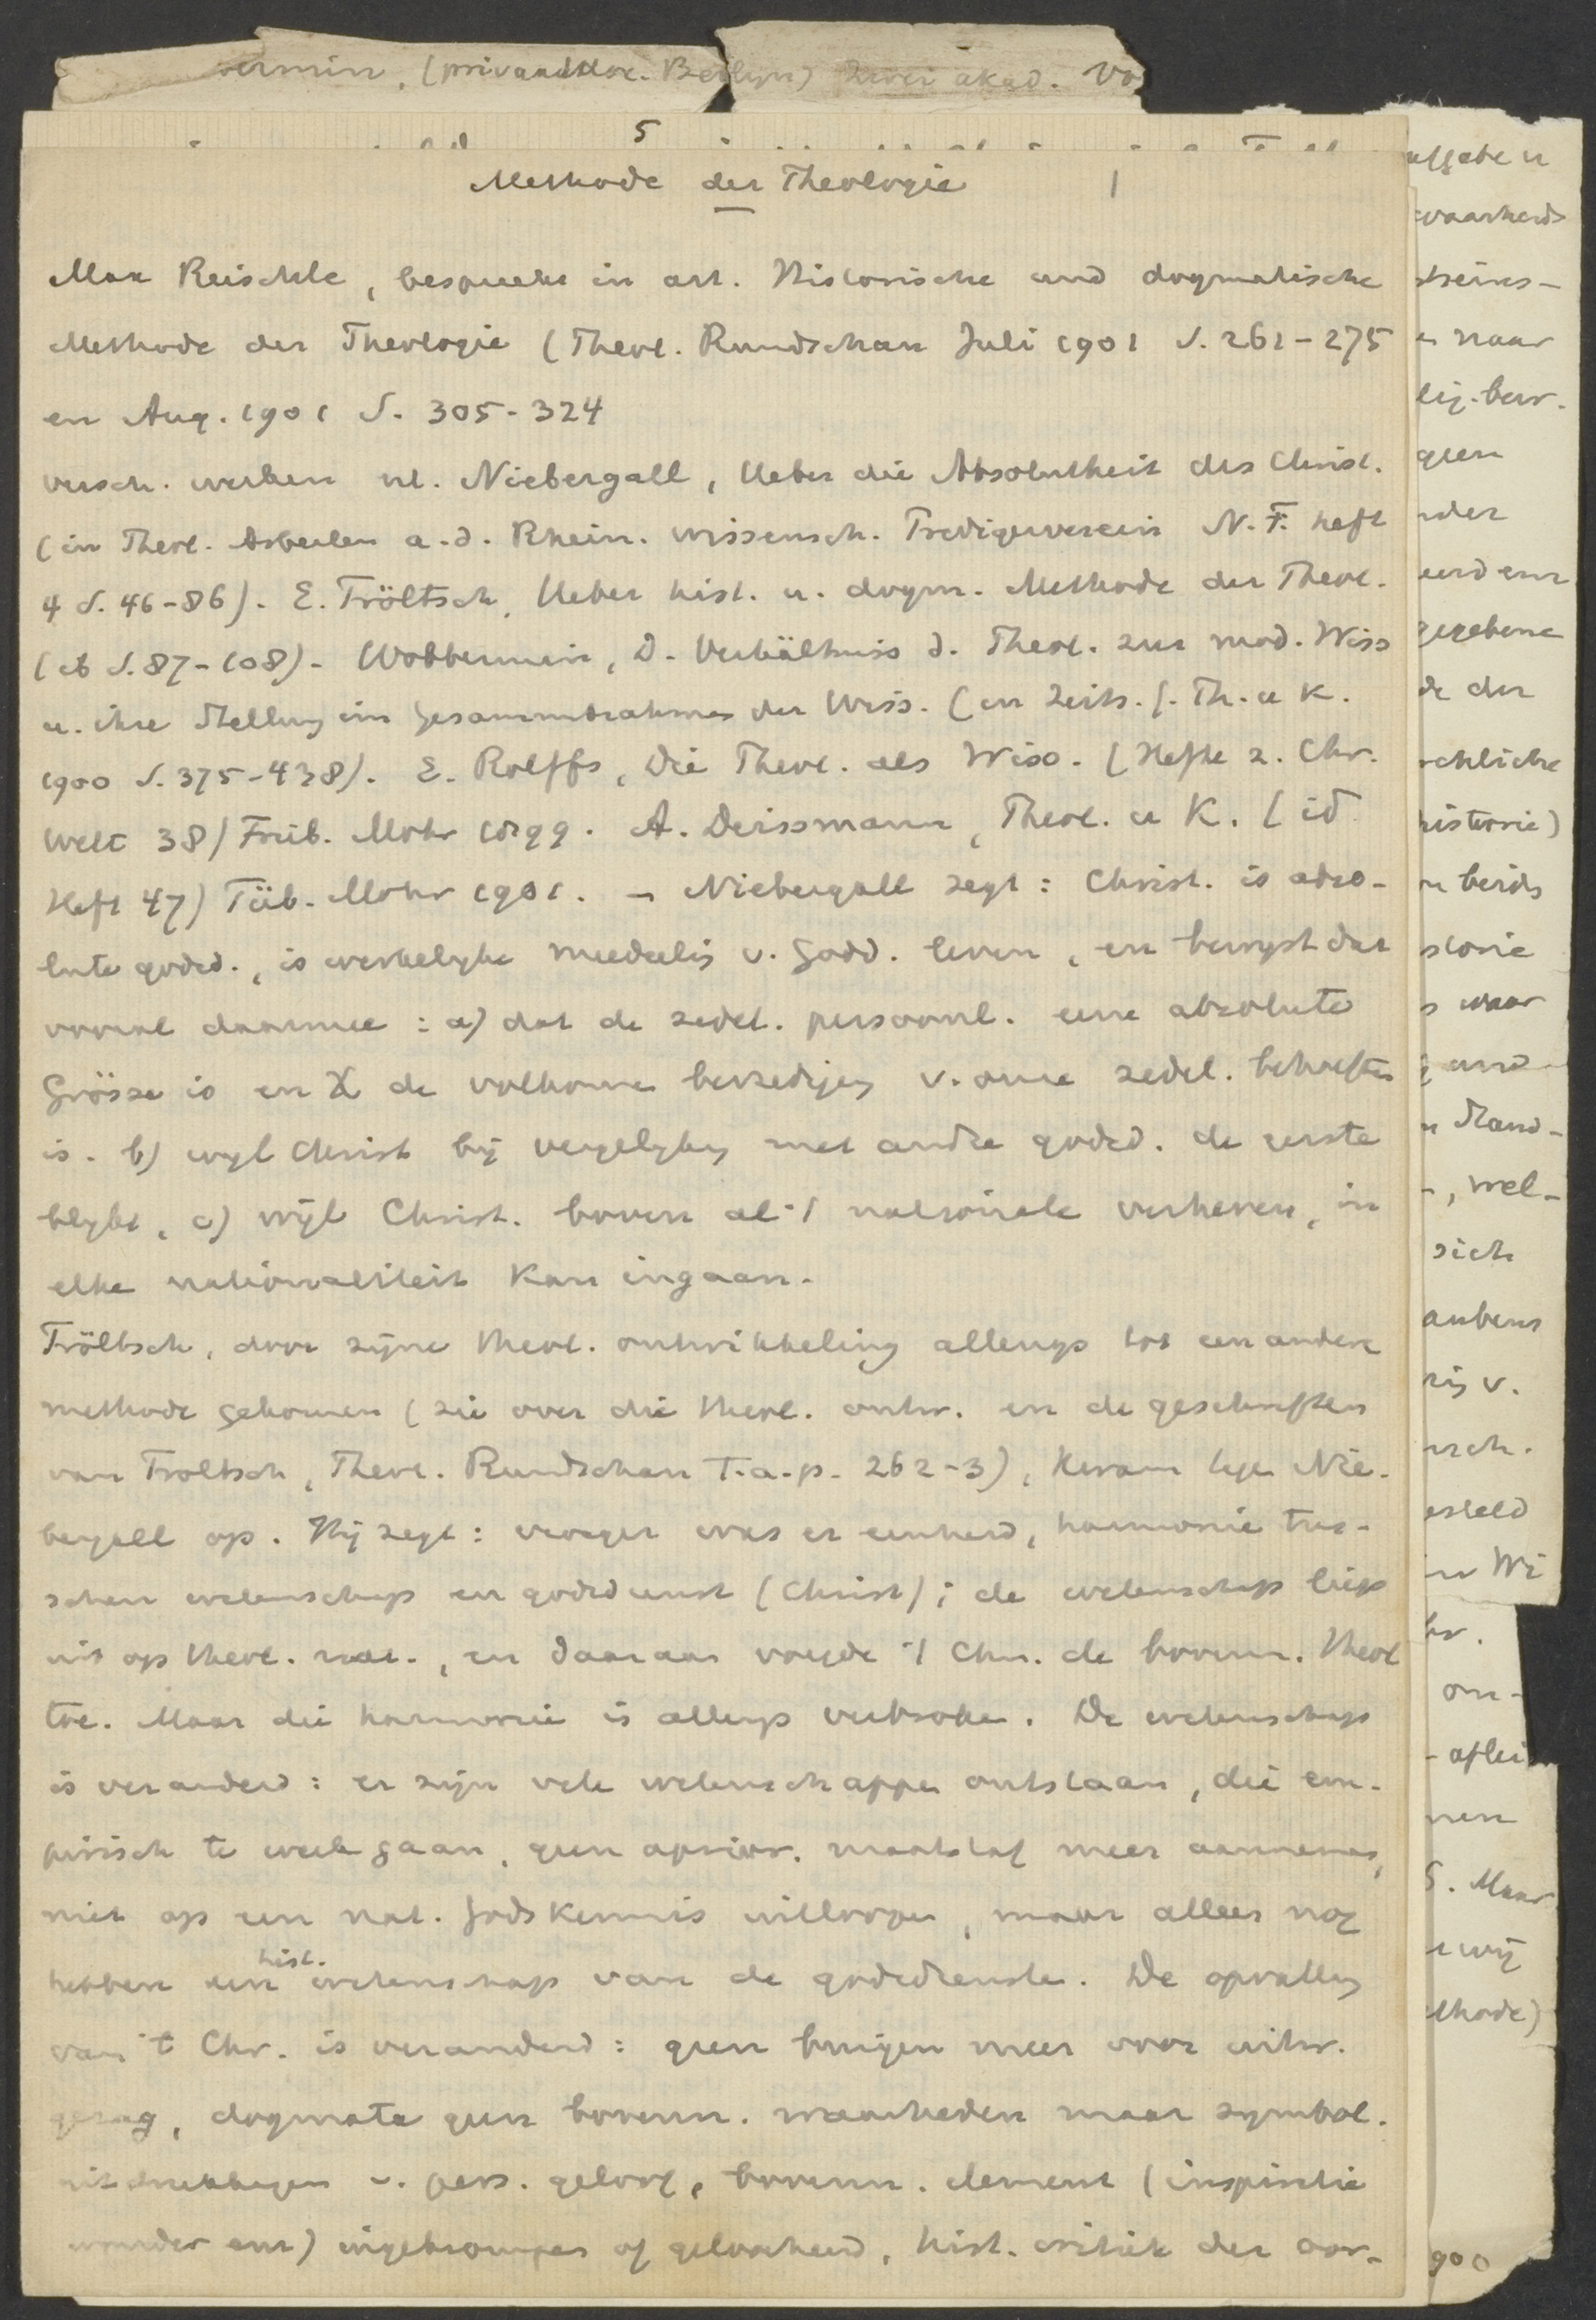 (privaatdoc. Berlijn) Zwei akad. Vo
5
Methode der Theologie 1
Max Reischle, bespreekt in art. Historische und dogmatische
Methode der Theologie (Theol. Rundschau Juli 1901 S. 261-275
en Aug. 1901 S. 305-324
versch. werken nl. Niebergall, Ueber die Absolutheit des Christ.
(in Theol. Arbeiten a.d. Rhein. wissensch. Predigerverein N.F. Heft
4 S. 46-86). E. Tröltsch, Ueber hist. u. dogm. Methode der Theol.
(ib S. 87-108). Wobbermin, D. Verhältniss d. Theol. zur mod. Wiss
u. ihre Stellung im Gesammtrahmen der Wiss. (in Zeits. f. Th. u K.
1900 S. 375-438). E. Rolffs, Die Theol. als Wiss. (Hefte z. Chr.
Welt 38) Freib. Mohr 1899. A. Deissmann, Theol. u K. (id
Heft 47) Tüb. Mohr 1901. - Niebergall zegt: Christ. is abso-
lute godsd., is werkelyke meedeelig v. Godd. leven, en bewyst dat
vooral daarmee: a) dat de zedel. persoonl. eene absolute
Grösse is en X de volkomen bevrediging v. onze zedel. behoeften
is. b) wyl Christ by vergelyking met andre godsd. de eerste
blykt, c) wyl Christ. boven al 't nationale verheven, in
elke nationaliteit kan ingaan.
Tröltsch, door zyne theol. ontwikkeling allengs tot een andere
methode gekomen (zie over die theol. ontw. en de geschriften
van Troltsch, Theol. Rundschau T.a.p. 262-3), kwam tegen Nie-
bergall op. Hij zegt: vroeger was er eenheid, harmonie tus-
schen wetenschap en godsdienst (Christ); de wetenschap liep
uit op theol. nat., en daaraan voegde 't Chr. de bovenn. theol
toe. Maar die harmonie is allengs verbroken. De wetenschap
is veranderd: er zijn vele wetenschappen ontstaan, die em-
pirisch te werk gaan, geen aprior. maatstaf meer aannemen,
niet op een nat. Godskennis uitloopen, maar alleen nog
hebben een hist. wetenschap van de godsdiensten. De opvatting
van 't Chr. is veranderd: geen buigen meer voor uitw.
gezag, dogmata geen bovenn. waarheden maar symbol.
uitdrukkingen v. pers. geloof, bovenn. element (inspiratie
wonder enz) ingekrompen of geloochend, hist. critiek der oor-
waarheid
naar
geen
gegebene
de der
historie)
beids
storie
waar
und
Stand-
wel-
sich
aubens
v.
esteld
on-
nen
S. Maar
wij
ethode)
900